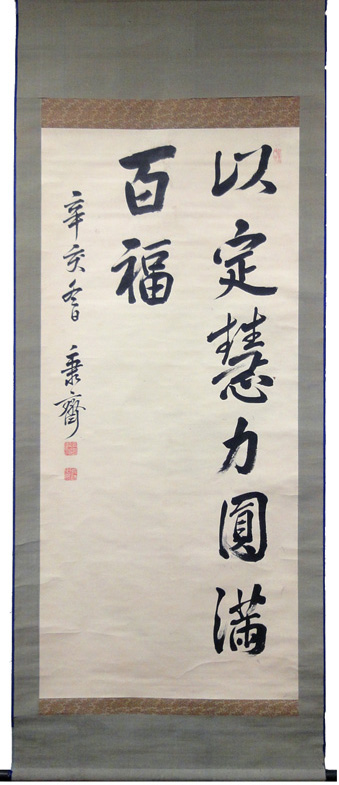 以定慧力圓滿
百福
辛亥 秉齋